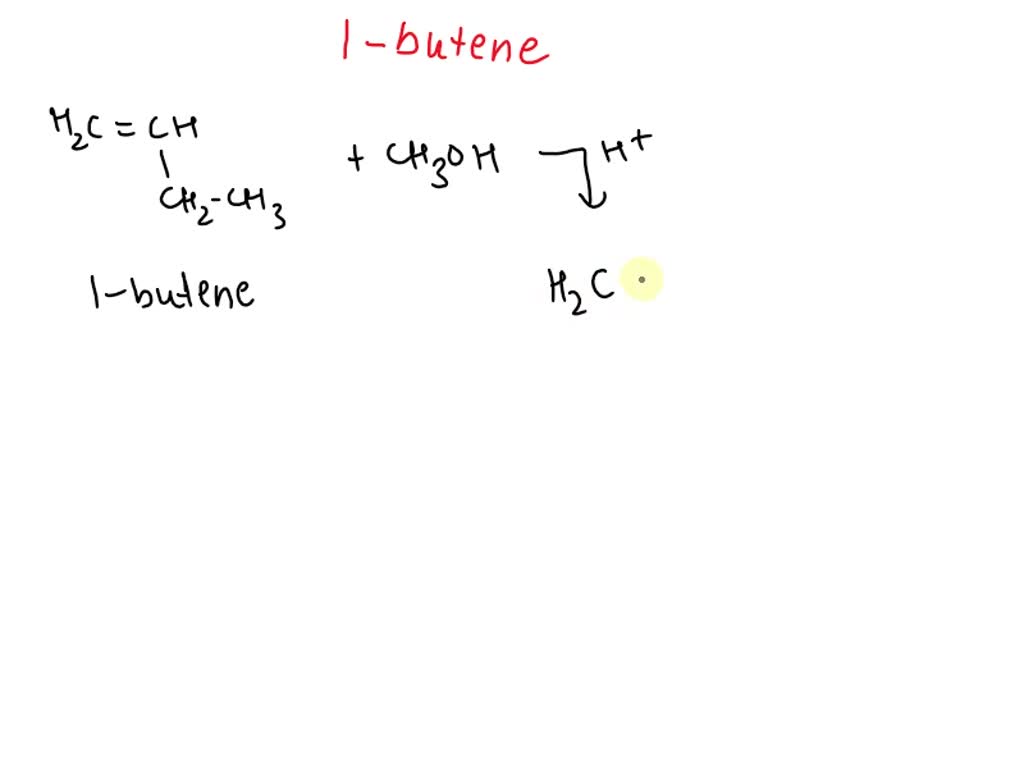 1-butene
H₂C = CH
+ CH₃OH
H⁺
CH₂-CH₃
1-butene
H₂C